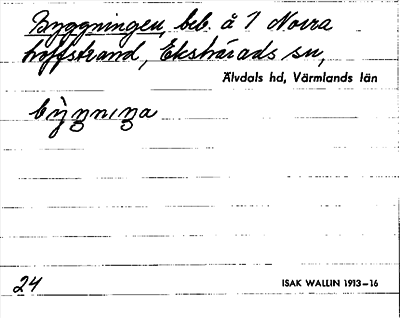 Byggningen, beb. å 1 Norra
Loffstrand, Ekshärads sn,
Älvdals hd, Värmlands län
bỳŋnıŋa
24
ISAK WALLIN 1913–16